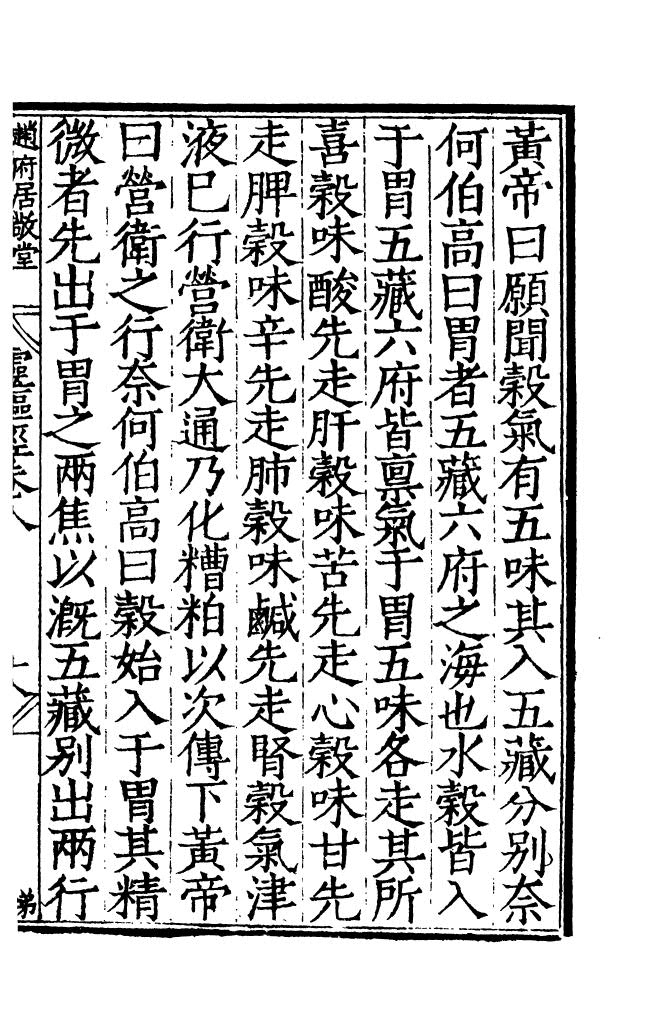 黃帝曰願聞榖氣有五味其入五藏分别奈
何伯高曰胃者五藏六府之海也水榖皆入
于胃五藏六府皆禀氣于胃五味各走其所
喜榖味酸先走肝榖味苦先走心榖味甘先
走脾榖味辛先走肺榖味鹹先走腎榖氣津
液巳行營衛大通乃化糟粕以次傳下黃帝
曰營衛之行奈何伯高曰榖始入于胃其精
微者先出于胃之兩焦以溉五藏别出兩行
趙府居敬堂
靈樞經卷八